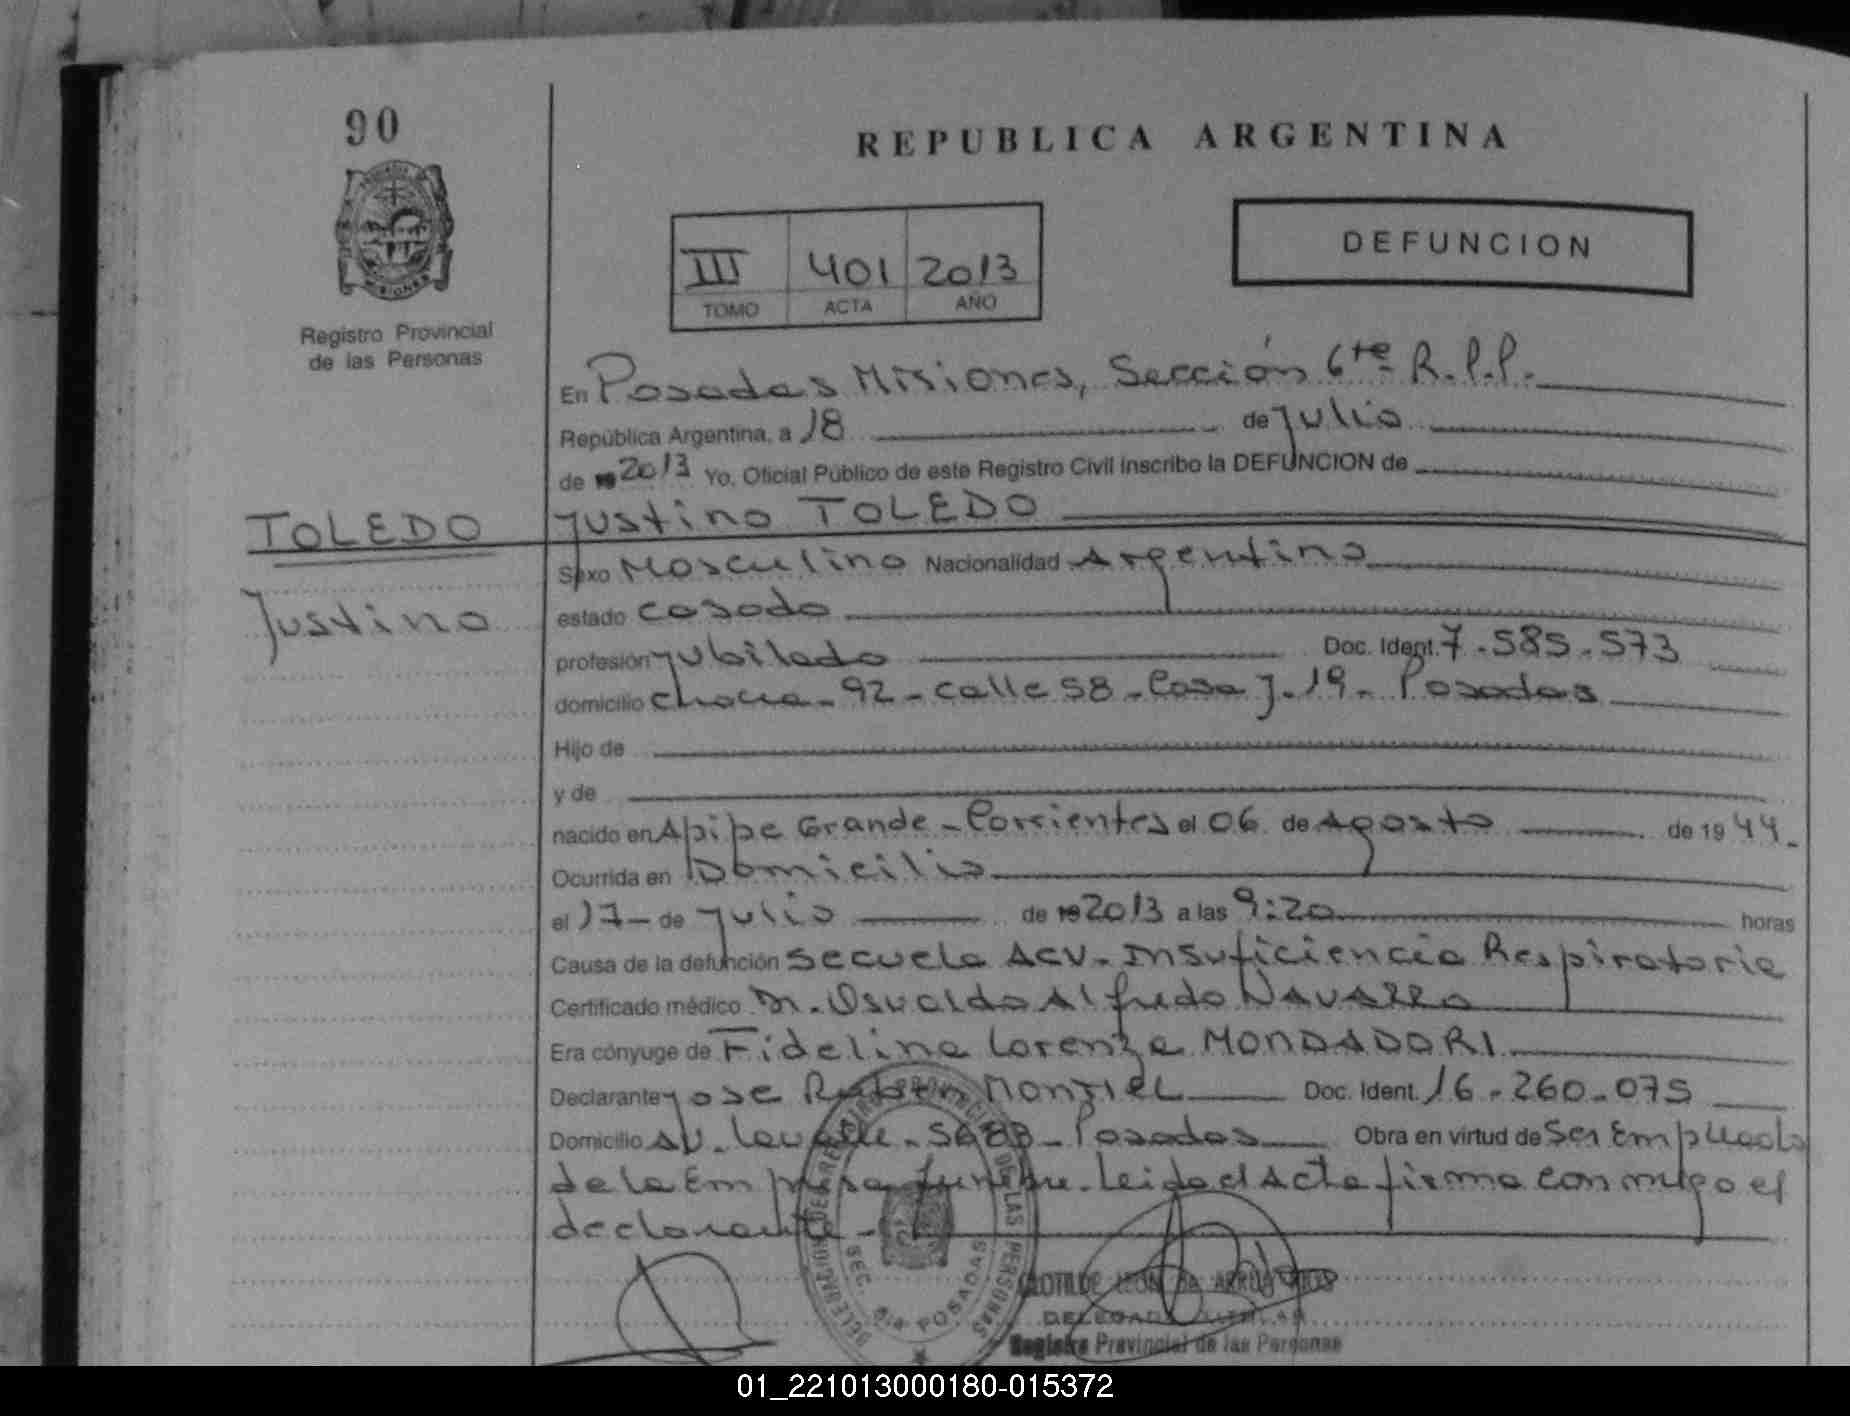 90
REPUBLICA ARGENTINA
DEFUNCION
III 401 2013
TOMO ACTA AÑO
Registro Provincial
de las Personas
En Posadas Misiones, Sección 6ta R.P.P.
República Argentina, a 18 de Julio
de 19 2013 Yo, Oficial Público de este Registro Civil inscribo la DEFUNCION de
TOLEDO
Justino
Justino TOLEDO
Sexo Masculino Nacionalidad Argentino
estado casado
profesión Jubilado Doc. Ident. 7.585.573
domicilio Chacra - 92 - calle 58 - Casa J. 19 - Posadas
Hijo de
y de
nacido en Apipe Grande - Corrientes el 06 de Agosto de 19 44.
Ocurrida en Domicilio
el 17 - de Julio de 19 2013 a las 9:20 horas
Causa de la defunción Secuela ACV - Insuficiencia Respiratoria
Certificado médico Dr. Osvaldo Alfredo NAVARRO
Era cónyuge de Fidelina Lorenza MONDADORI
Declarante Jose Ruben MONTIEL Doc. Ident. 16.260.075
Domicilio Av. Lavalle - 5683 - Posadas Obra en virtud de Ser Empleado
de la Empresa funebre. Leida el Acta firma conmigo el
declarante -
DELEGACION DEL REGISTRO PROVINCIAL DE LAS PERSONAS
SEC. 6ta POSADAS
CLOTILDE LEON DE
DELEGADA TITULAR
Registro Provincial de las Personas
01_221013000180-015372